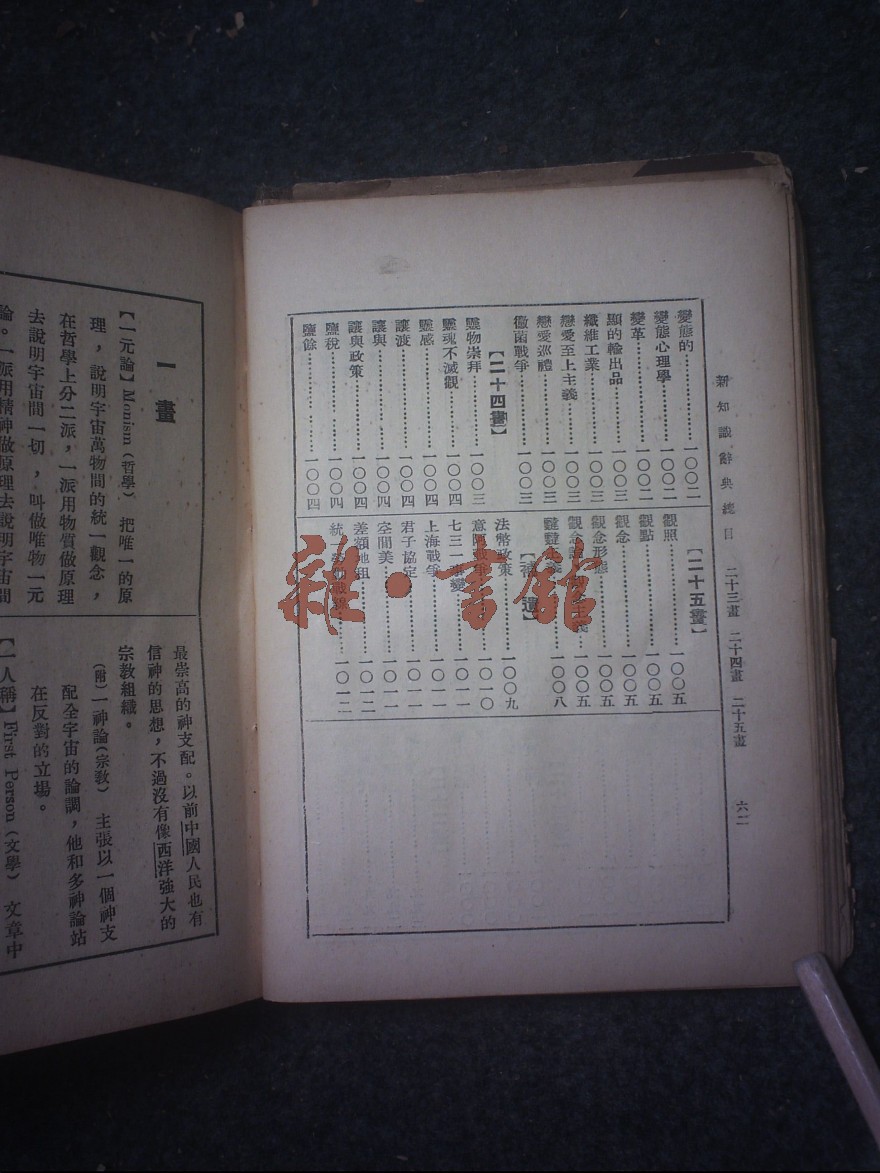 新知識辭典總目 二十三畫 二十四畫 二十五畫 六二
變態的 一〇〇二
變態心理學 一〇〇二
變革 一〇〇二
顯的輸出品 一〇〇三
纖維工業 一〇〇三
戀愛至上主義 一〇〇三
戀愛巡禮 一〇〇三
黴菌戰爭 一〇〇三
【二十四畫】
靈物崇拜 一〇〇三
靈魂不滅觀 一〇〇四
靈感 一〇〇四
讓渡 一〇〇四
讓與 一〇〇四
讓與政策 一〇〇四
鹽稅 一〇〇四
鹽餘 一〇〇四
【二十五畫】
觀照 一〇〇五
觀點 一〇〇五
觀念 一〇〇五
觀念形態 一〇〇五
觀念 主義 一〇〇五
一〇〇八
【補遺】
法幣政策 一〇〇九
意阿戰爭 一〇一〇
七三一事變 一〇一一
上海戰爭 一〇一一
君子協定 一〇一一
空間美 一〇一一
差額地租 一〇一二
統一 戰線 一〇一二
雜·書館
一畫
【一元論】Monism(哲學) 把唯一的原
理，說明宇宙萬物間的統一觀念，
在哲學上分二派，一派用物質做原理
去說明宇宙間一切，叫做唯物一元
論。一派用精神做原理去說明宇宙間
最崇高的神支配。以前中國人民也有
信神的思想，不過沒有像西洋強大的
宗教組織。
(附)一神論(宗教) 主張以一個神支
配全宇宙的論調，他和多神論站
在反對的立場。
【一人稱】First Person(文學) 文章中